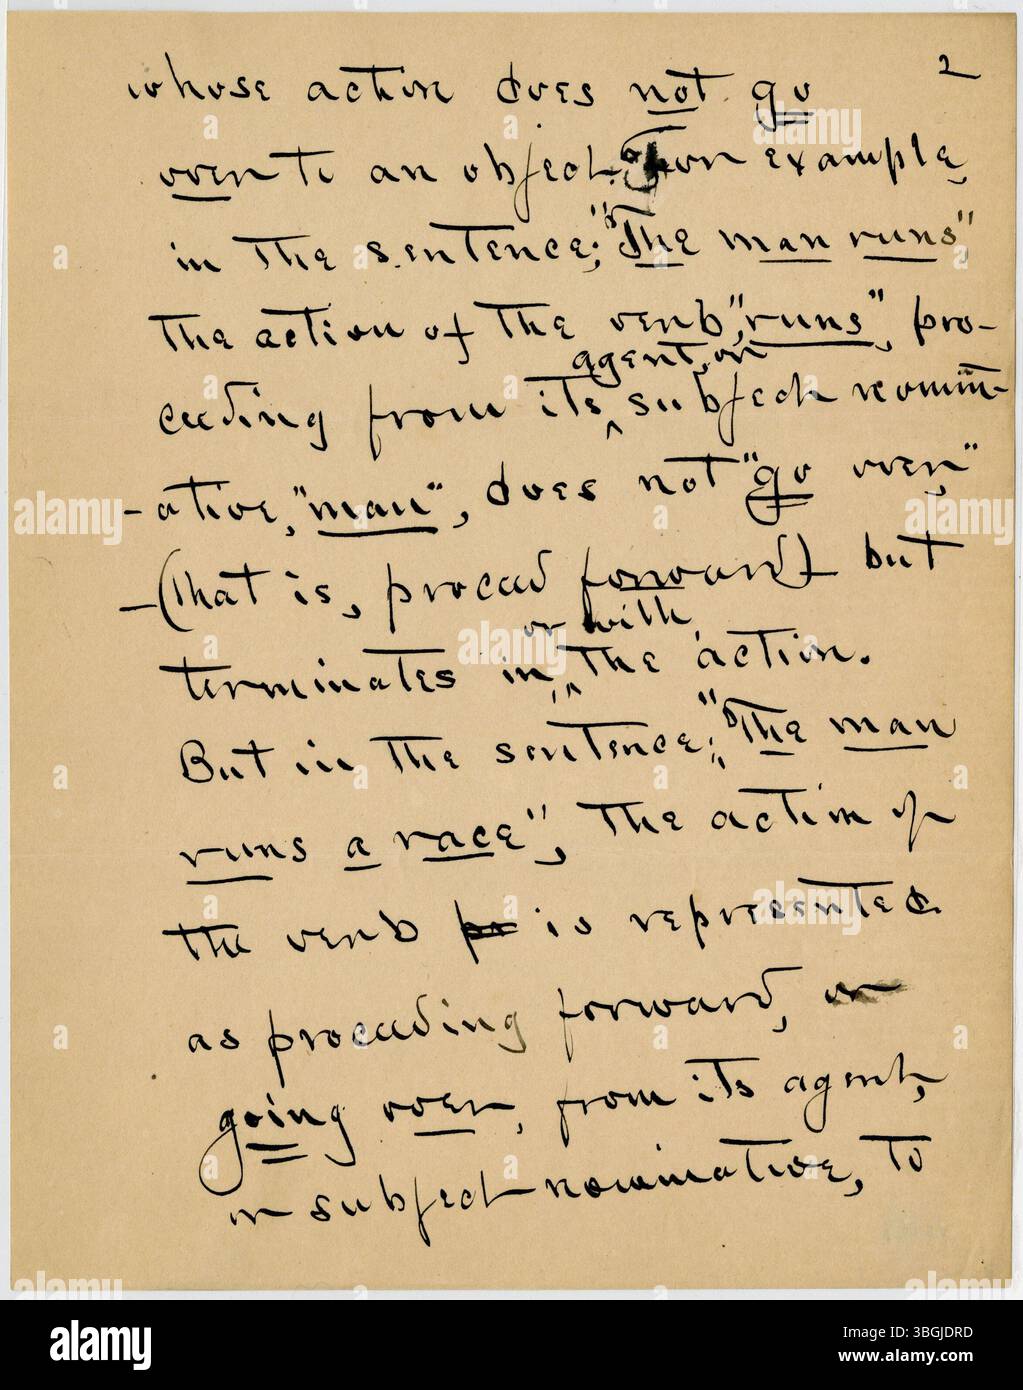 2
whose action does not go
over to an object. For example,
in the sentence; "The man runs"
the action of the verb, "runs", pro-
agent, or
ceeding from its ^ subject nomin-
-ative, "man", does not "go over,"
-(that is, proceed forward) but
or with
terminates in, ^ the action.
But in the sentence; "The man
runs a race", the action of
the verb is represented
as proceeding forward, or
going over, from its agent,
or subject-nominative, to
alamy
Image ID: 3BGJDRD
www.alamy.com